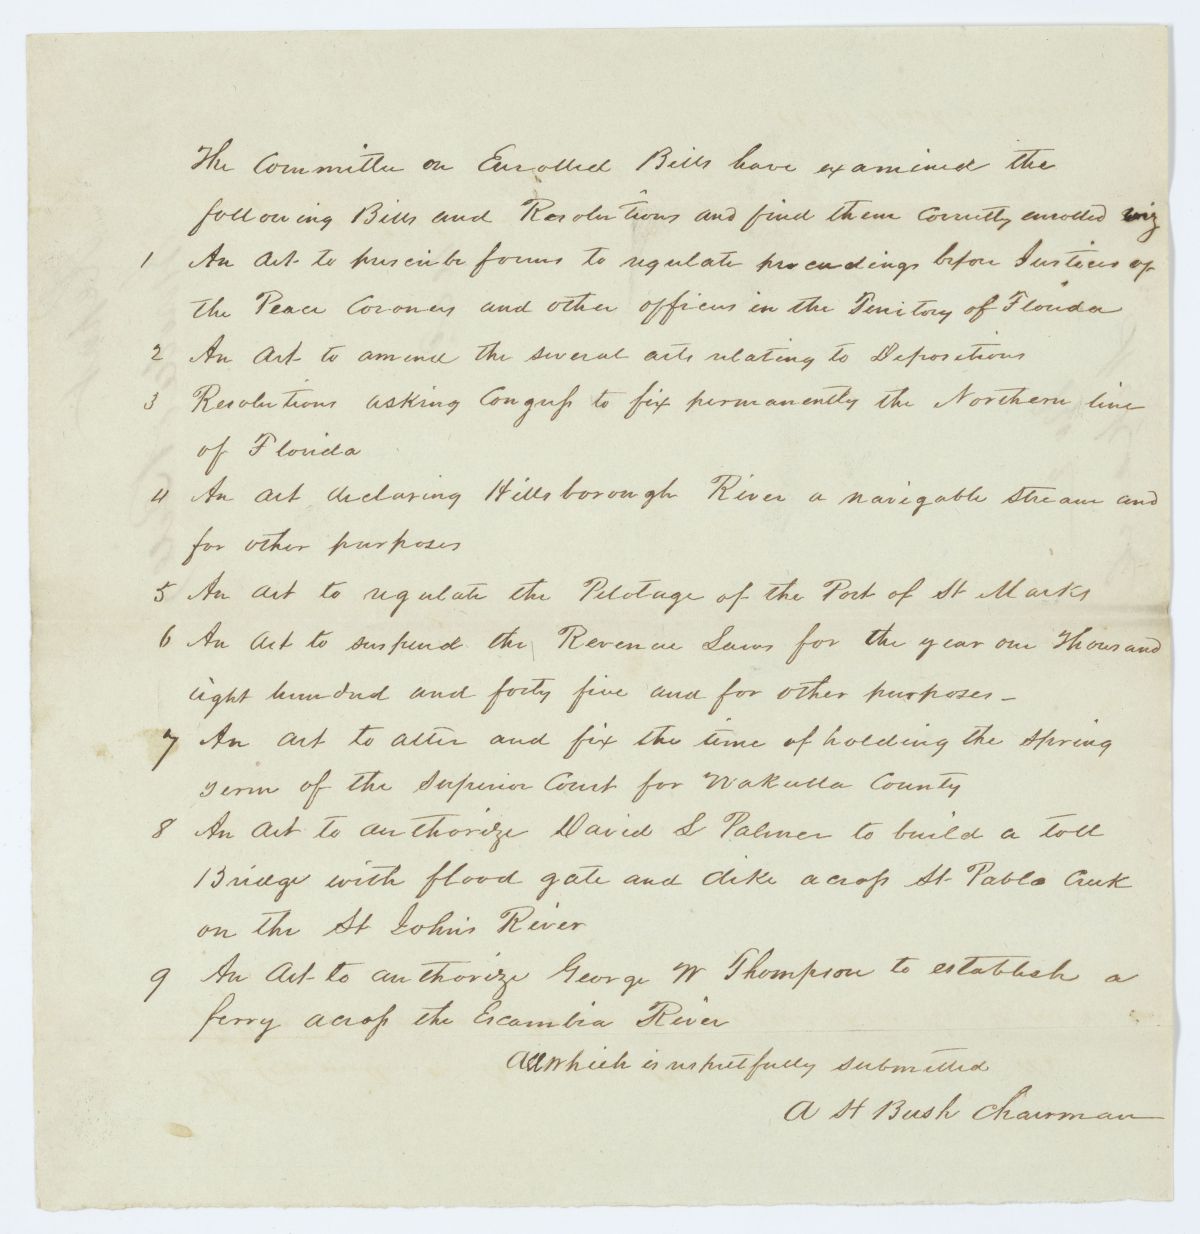 The Committee on Enrolled Bills have examined the
following Bills and Resolutions and find them correctly enrolled viz
1 An Act to prescribe forms to regulate proceedings before Justices of
the Peace Coroners and other officers in the Territory of Florida
2 An Act to amend the several acts relating to Depositions
3 Resolutions asking Congress to fix permanently the Northern line
of Florida
4 An act declaring Hillsborough River a navigable stream and
for other purposes
5 An act to regulate the Pilotage of the Port of St Marks
6 An act to suspend the Revenue Laws for the year one Thousand
eight hundred and forty five and for other purposes -
7 An act to alter and fix the time of holding the spring
term of the Superior Court for Wakulla County
8 An Act to authorize David L Palmer to build a toll
Bridge with flood gate and dike across St Pablo Creek
on the St Johns River
9 An Act to authorize George W Thompson to establish a
ferry across the Escambia River
All which is respectfully submitted
A H Bush Chairman